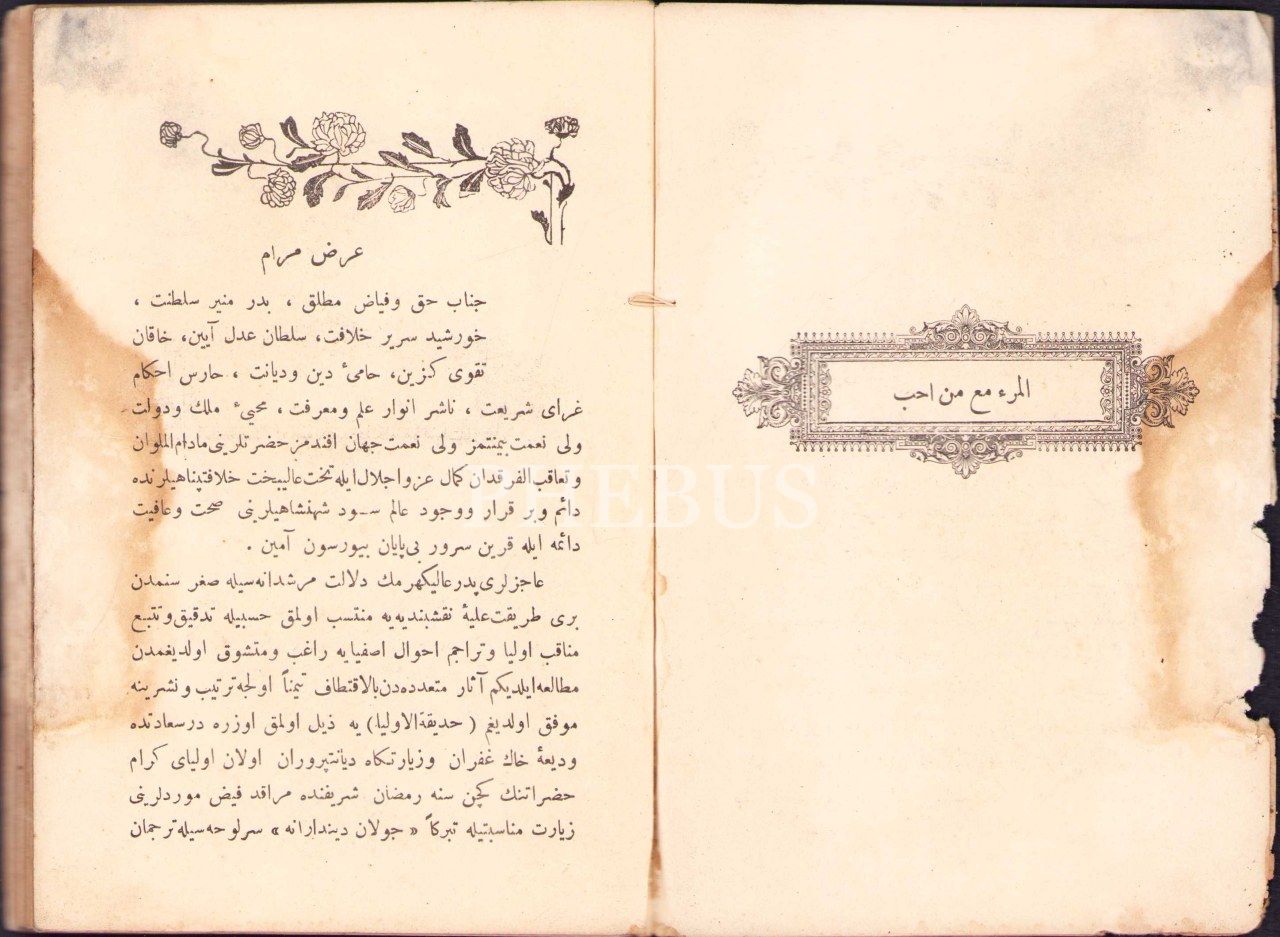 المرء مع من احب
عرض مرام
جناب حق وفیاض مطلق ، بدر منیر سلطنت ،
خورشید سریر خلافت، سلطان عدل آیین، خاقان
تقوی کزین، حامیٔ دین ودیانت ، حارس احکام
غرای شریعت ، ناشر انوار علم ومعرفت ، محییٔ ملك ودولت
ولی نعمت بیمنتمز ولی نعمت جهان افندمز حضرتلرینی مادام الملوان
وتعاقب الفرقدان کمال عز واجلال ایله تخت عالیبخت خلافتپناهیلرنده
دائم وبر قرار ووجود عالم سـود شهنشاهیلرینی صحت وعافیت
دائمه ایله قرین سرور بی‌پایان بیورسون آمین .
عاجزلری پدر عالیکهرمك دلالت مرشدانه‌سیله صغر سنمدن
بری طریقت علیهٔ نقشبندیه‌یه منتسب اولمق حسبیله تدقیق وتتبع
مناقب اولیا وتراجم احوال اصفیایه راغب ومتشوق اولدیغمدن
مطالعه ایلدیکم آثار متعدده‌دن بالاقتطاف تیمناً اولجه ترتیب ونشرینه
موفق اولدیغم ( حدیقة الاولیا ) یه ذیل اولمق اوزره درسعادتده
ودیعهٔ خاك غفران وزیارتکاه دیانتپروران اولان اولیای کرام
حضراتنك کچن سنه رمضان شریفنده مراقد فیض موردلرینی
زیارت مناسبتیله تبرکاً « جولان دیندارانه » سرلوحه‌سیله ترجمان
PHEBUS